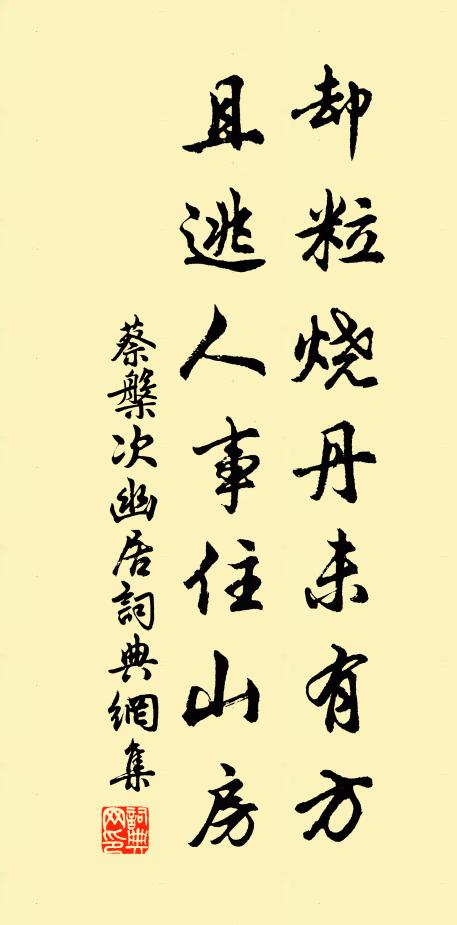 却粒烧丹未有方
且逃人事住山房
蔡槃次幽居詞典網集
詞典網印